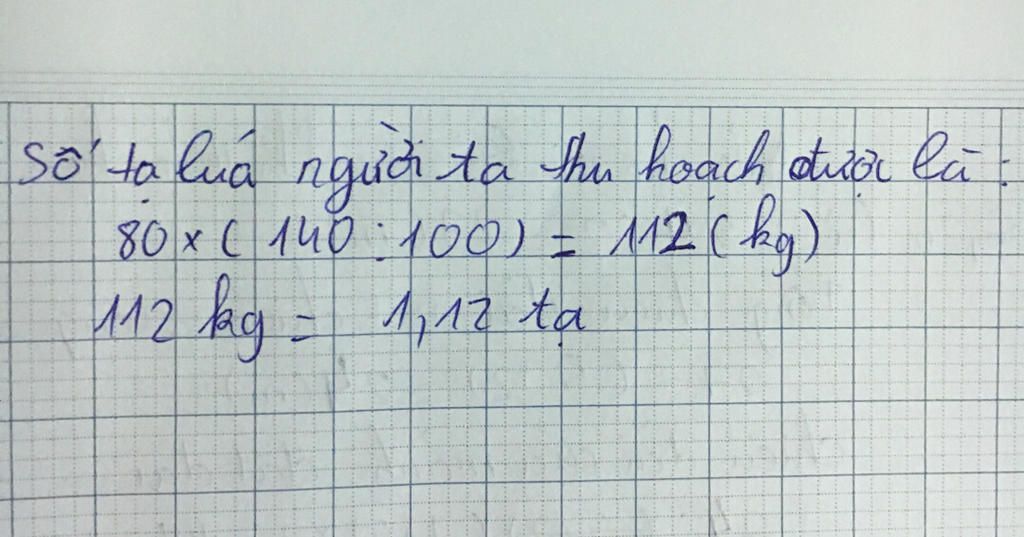 Số tạ luá người ta thu hoạch được là:
80 x ( 140 : 100 ) = 112 ( kg )
112 kg = 1,12 tạ